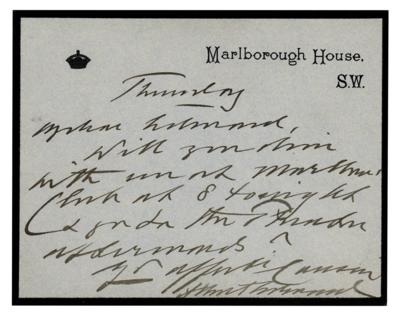 Marlborough House,
S.W.
Thursday
My dear Edmond,
Will you dine
with me at Marlboro'
Club at 8 tonight
& go to the Theatre
afterwards?
Yr affecte Cousin